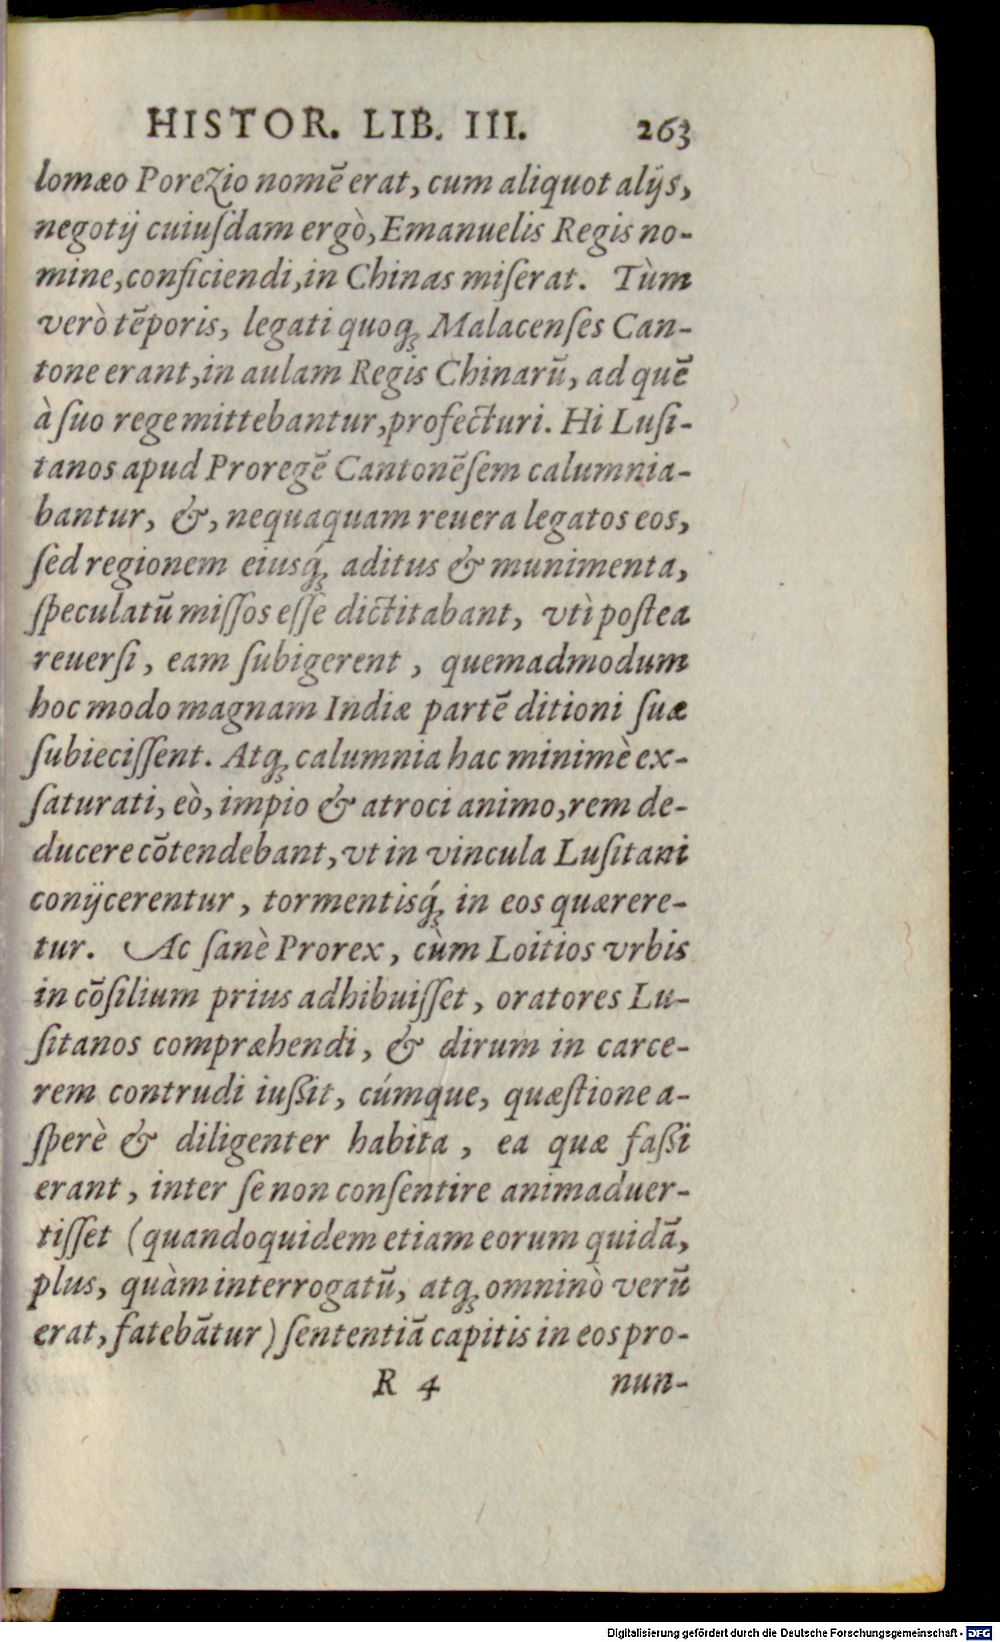 HISTOR. LIB. III. 263
lomæo Porezio nomẽ erat, cum aliquot alijs,
negotij cuiuſdam ergò, Emanuelis Regis no-
mine, conficiendi, in Chinas miſerat. Tùm
verò tẽporis, legati quoq́; Malacenſes Can-
tone erant, in aulam Regis Chinarũ, ad quẽ
à ſuo rege mittebantur, profecturi. Hi Luſi-
tanos apud Proregẽ Cantonẽſem calumnia-
bantur, &, nequaquam reuera legatos eos,
ſed regionem eiusq́; aditus & munimenta,
ſpeculatũ miſſos eſſe dictitabant, vtì poſtea
reuerſi, eam ſubigerent, quemadmodum
hoc modo magnam Indiæ partẽ ditioni ſuæ
ſubieciſſent. Atq; calumnia hac minimè ex-
ſaturati, eò, impio & atroci animo, rem de-
ducere cõtendebant, vt in vincula Luſitani
conijcerentur, tormentisq́; in eos quærere-
tur. Ac ſanè Prorex, cùm Loitios vrbis
in cõſilium prius adhibuiſſet, oratores Lu-
ſitanos compræhendi, & dirum in carce-
rem contrudi iußit, cúmque, quæſtione a-
ſperè & diligenter habita, ea quæ faßi
erant, inter ſe non conſentire animaduer-
tiſſet (quandoquidem etiam eorum quidã,
plus, quàm interrogatũ, atq; omninò verũ
erat, fatebãtur) ſententiã capitis in eos pro-
R 4 nun-
Digitalisierung gefördert durch die Deutsche Forschungsgemeinschaft - DFG